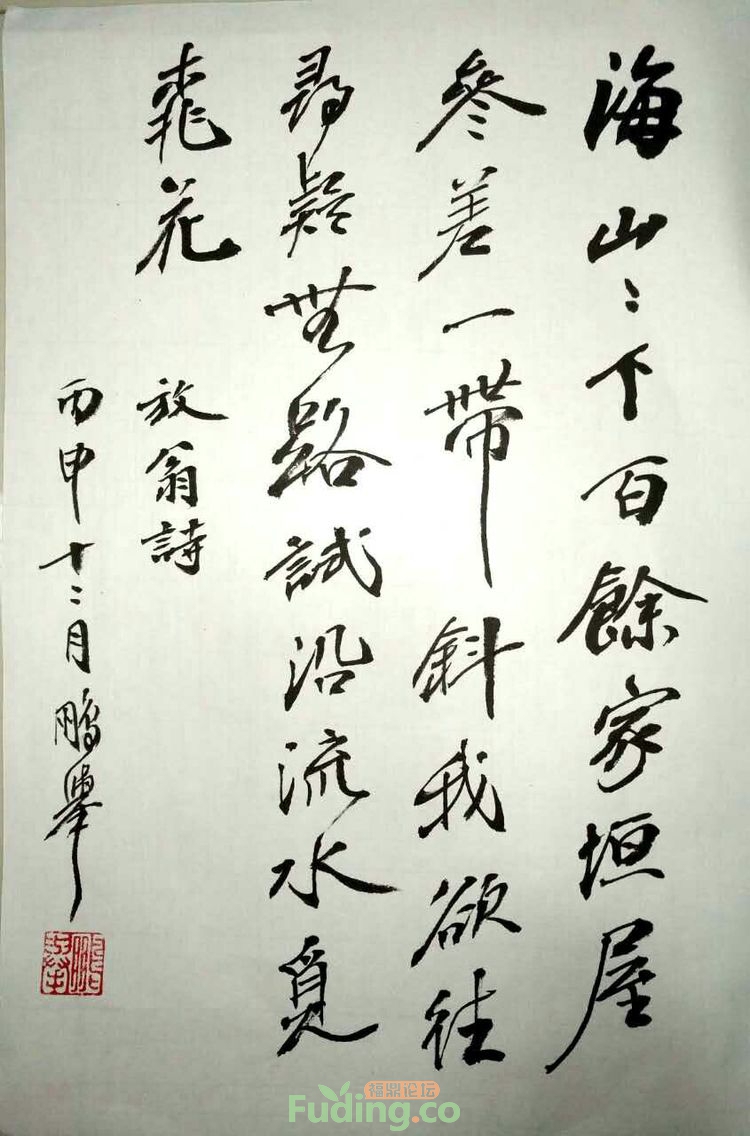 海山〻下百餘家垣屋
參差一帶斜我欲往
尋疑無路試沿流水覓
桃花
放翁詩
丙申十二月鵬舉
福鼎论坛
Fuding.co